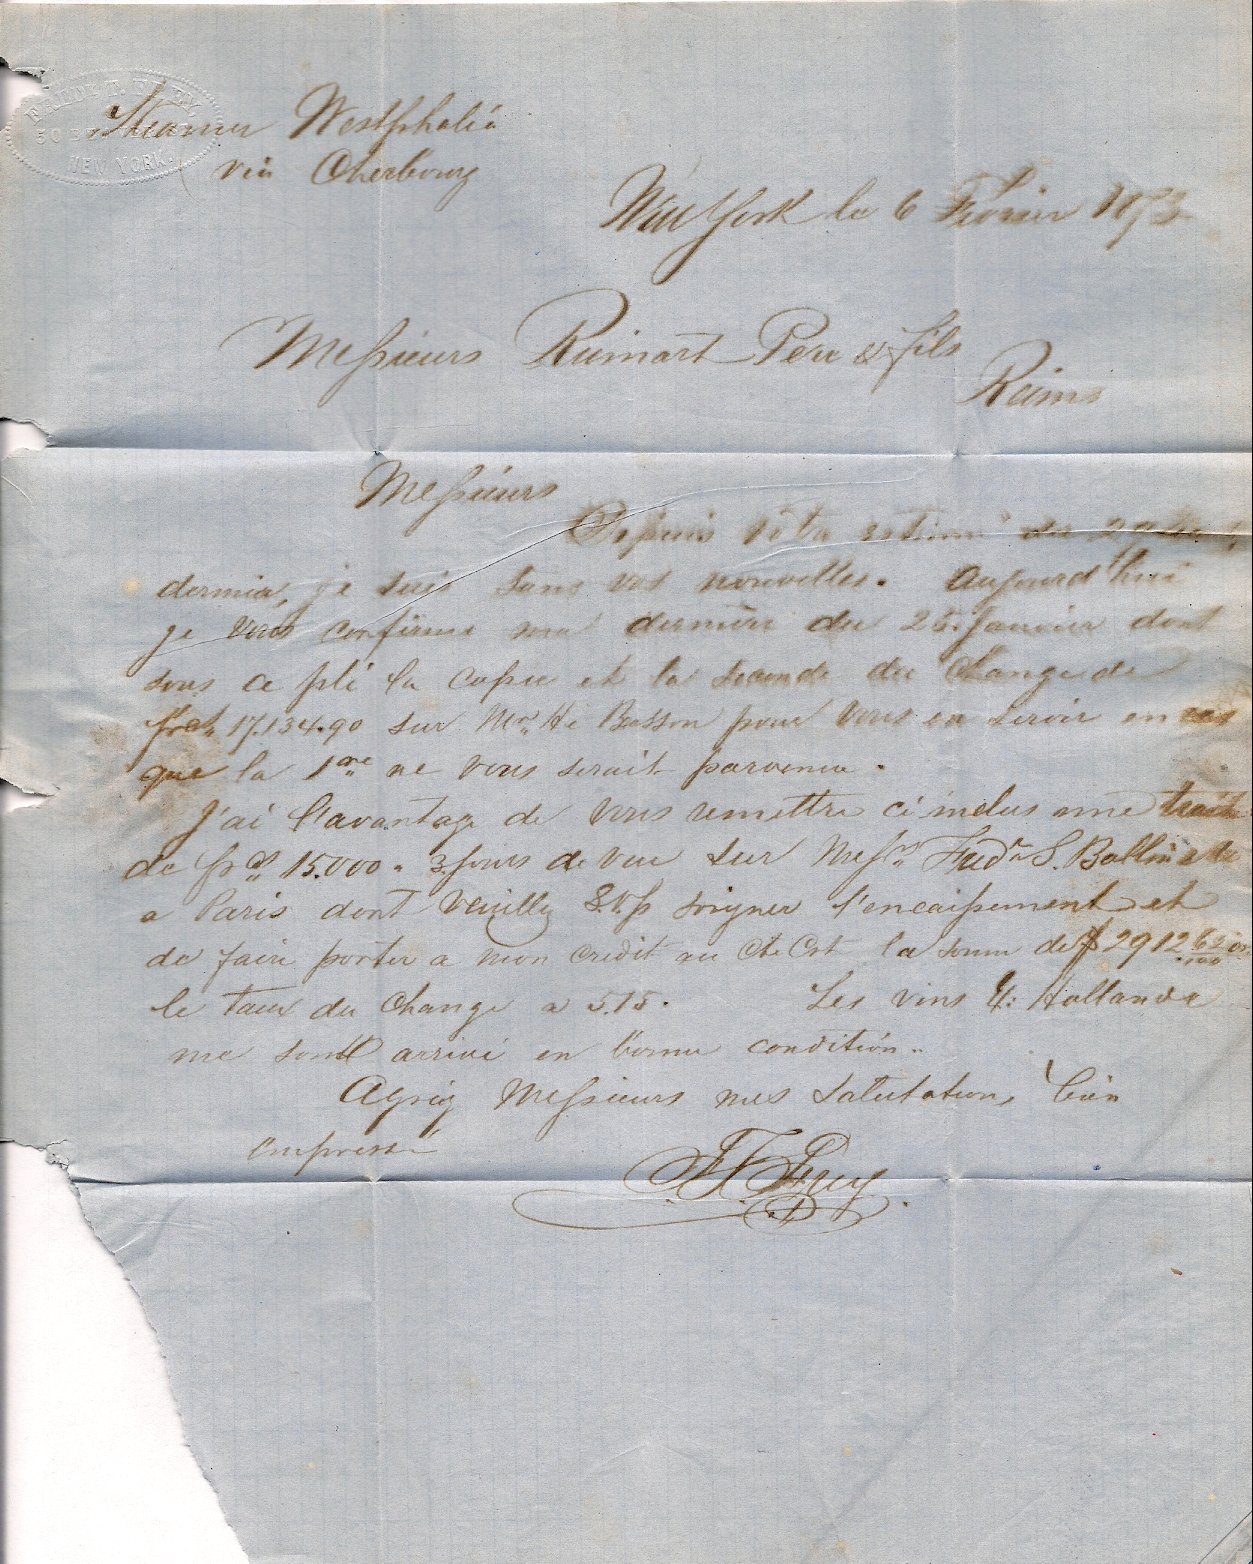 NEW YORK.
Steamer Westphalia
via Cherbourg
New York le 6 Fevrier 1873
Messieurs Ruinart Pere & fils
Reims
Messieurs
Depuis votre estimé du 29
dernier, je suis sans vos nouvelles. Aujourd'hui
je vous confirme ma derniere du 25. Janvier dont
sous ce pli la copie et la seconde du change de
frcs 17.134.90 sur Mr. He Basson pour vous en servir en cas
que la 1ere ne vous serait parvenu.
J'ai l'avantage de vous remettre ci inclus une traite
de frcs 15.000. 3 jours de vue sur Messrs Fredr S. Ballin
a Paris dont veuillez S.V.p soigner l'encaissement et
de faire porter a mon credit au Ct. Crt la somme de $ 2912 62/100 or
le taux du change a 5.15. Les vins Hollande
me sont arrivé en bonne condition.
Agréz Messieurs mes salutations bien
empressé
F. T. Frey